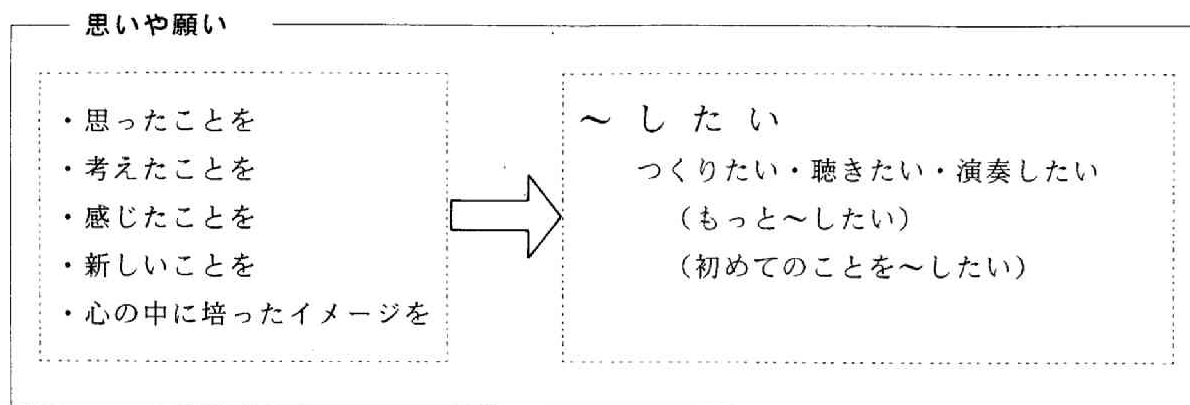 思いや願い
・思ったことを
・考えたことを
・感じたことを
・新しいことを
・心の中に培ったイメージを
～したい
つくりたい・聴きたい・演奏したい
（もっと～したい）
（初めてのことを～したい）